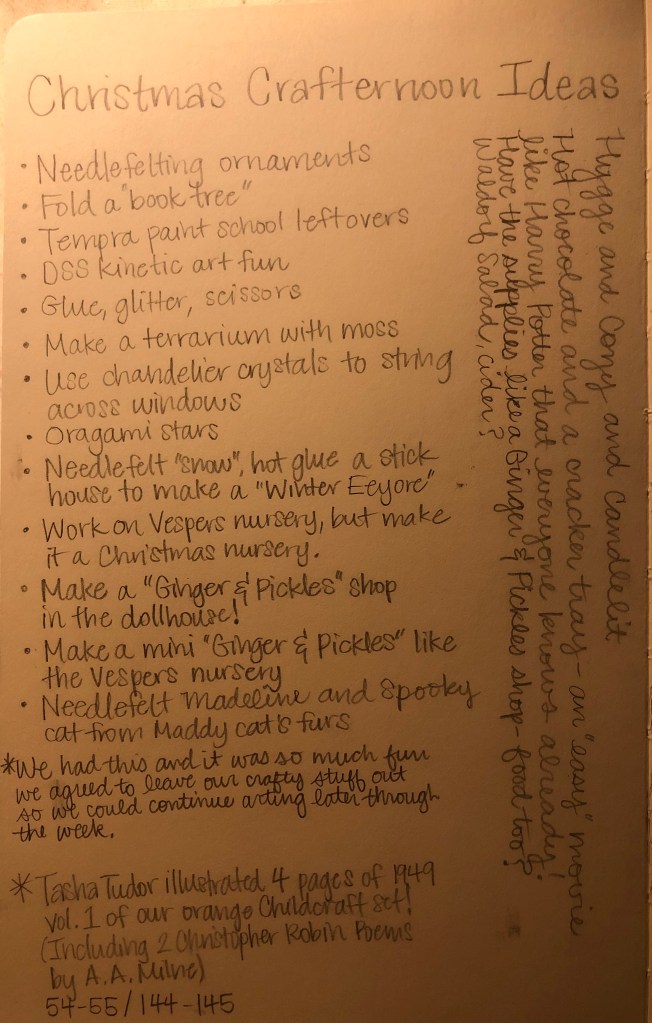 Christmas Crafternoon Ideas
• Needlefelting ornaments
• Fold a "book tree"
• Tempra paint school leftovers
• DSS kinetic art fun
• Glue, glitter, scissors
• Make a terrarium with moss
• Use chandelier crystals to string
across windows
• Oragami stars
• Needlefelt "snow", hot glue a stick
house to make a "Winter Eeyore"
• Work on Vespers nursery, but make
it a Christmas nursery.
• Make a "Ginger & Pickles" shop
in the dollhouse!
• Make a mini "Ginger & Pickles" like
the Vespers nursery
• Needlefelt Madeline and Spooky
cat from Maddy cat's furs
*We had this and it was so much fun
we agreed to leave our crafty stuff out
so we could continue arting later through
the week.
* Tasha Tudor illustrated 4 pages of 1949
vol. 1 of our orange Childcraft set!
(Including 2 Christopher Robin Poems
by A.A. Milne)
54-55/144-145
Hygge and Cozy and Candlelit
Hot chocolate and a cracker tray - an "easy" movie
like Harry Potter that everyone knows already!
Have the supplies like a Ginger & Pickles shop - food too?
Waldorf Salad, cider?